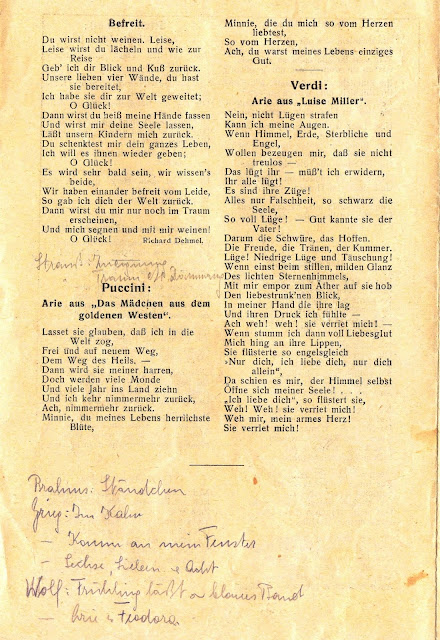 Befreit.
Du wirst nicht weinen. Leise,
Leise wirst du lächeln und wie zur
Reise
Geb' ich dir Blick und Kuß zurück.
Unsere lieben vier Wände, du hast
sie bereitet,
Ich habe sie dir zur Welt geweitet;
O Glück!
Dann wirst du heiß meine Hände fassen
Und wirst mir deine Seele lassen,
Läßt unsern Kindern mich zurück.
Du schenktest mir dein ganzes Leben,
Ich will es ihnen wieder geben;
O Glück!
Es wird sehr bald sein, wir wissen's
beide,
Wir haben einander befreit vom Leide,
So gab ich dich der Welt zurück.
Dann wirst du mir nur noch im Traum
erscheinen,
Und mich segnen und mit mir weinen!
O Glück!
Richard Dehmel.
Strauß: Zueignung
Traum
Puccini:
Arie aus „Das Mädchen aus dem
goldenen Westen“.
Lasset sie glauben, daß ich in die
Welt zog,
Frei und auf neuem Weg,
Dem Weg des Heils. —
Dann wird sie meiner harren,
Doch werden viele Monde
Und viele Jahr ins Land ziehn
Und ich kehr nimmermehr zurück,
Ach, nimmermehr zurück.
Minnie, du meines Lebens herrlichste
Blüte,
Minnie, die du mich so vom Herzen
liebtest,
So vom Herzen,
Ach, du warst meines Lebens einziges
Gut.
Verdi:
Arie aus „Luise Miller“.
Nein, nicht Lügen strafen
Kann ich meine Augen.
Wenn Himmel, Erde, Sterbliche und
Engel,
Wollen bezeugen mir, daß sie nicht
treulos —
Das lügt ihr — müßt ich erwidern,
Ihr alle lügt!
Es sind ihre Züge!
Alles nur Falschheit, so schwarz die
Seele,
So voll Lüge! — Gut kannte sie der
Vater!
Darum die Schwüre, das Hoffen,
Die Freude, die Tränen, der Kummer.
Lüge! Niedrige Lüge und Täuschung!
Wenn einst beim stillen, milden Glanz
Des lichten Sternenhimmels,
Mit mir empor zum Äther auf sie hob
Den liebestrunk'nen Blick,
In meiner Hand die ihre lag
Und ihren Druck ich fühlte —
Ach weh! weh! sie verriet mich! —
Wenn stumm ich dann voll Liebesglut
Mich hing an ihre Lippen,
Sie flüsterte so engelsgleich
»Nur dich, ich liebe dich, nur dich
allein“,
Da schien es mir, der Himmel selbst
Öffne sich meiner Seele! . . .
„Ich liebe dich“, so flüstert sie,
Weh! Weh! sie verriet mich!
Weh mir, mein armes Herz!
Sie verriet mich!
Brahms: Ständchen
Grieg: Im Kahn
— Komm ans mein Fenster
— Sechse, Sieben Acht
Wolf: Frühling läßt Band
— Arie Fedora